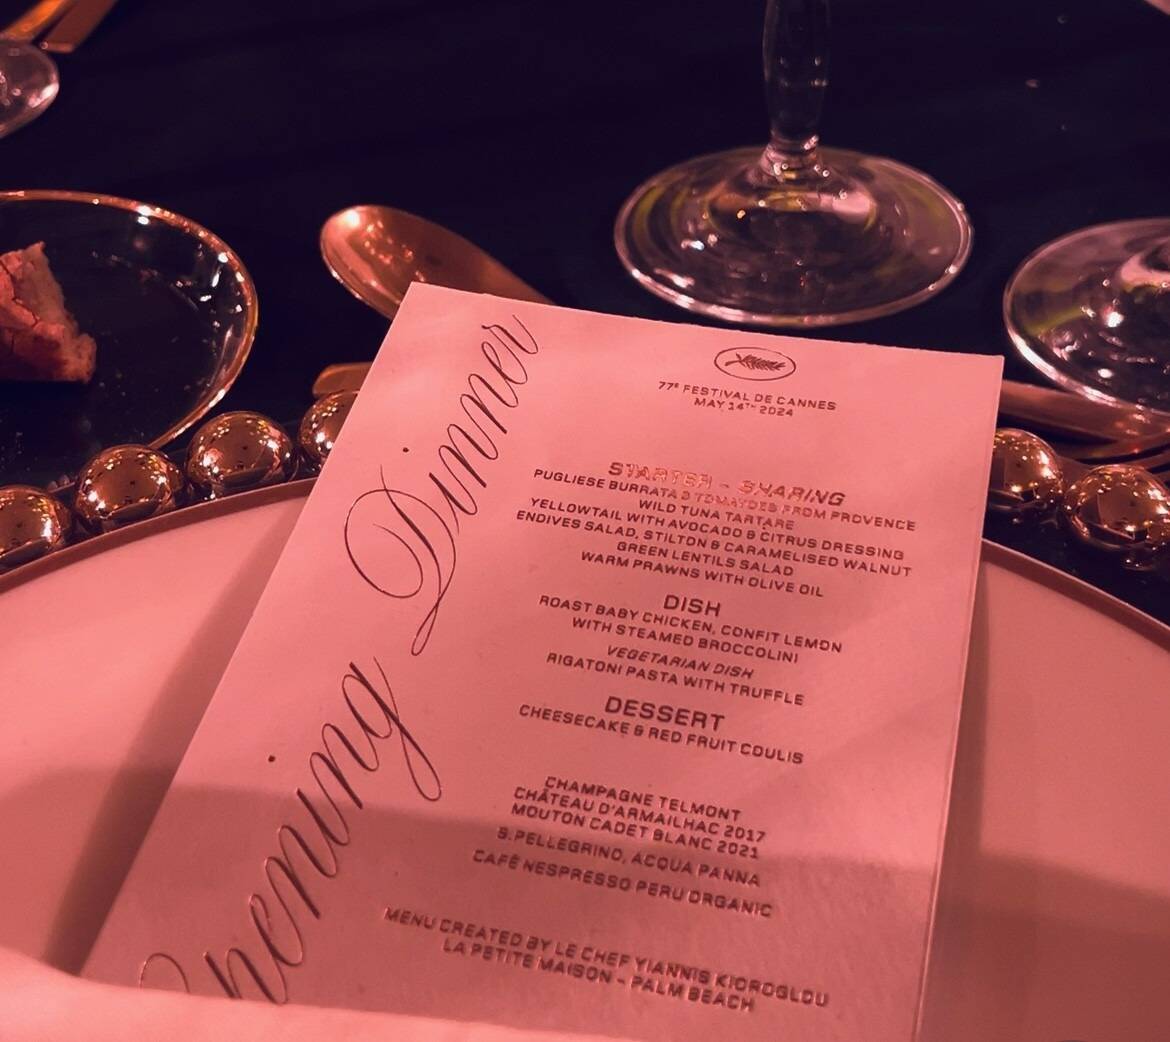 Opening Dinner
77E FESTIVAL DE CANNES
MAY 14TH 2024
STARTER - SHARING
PUGLIESE BURRATA & TOMATOES FROM PROVENCE
WILD TUNA TARTARE
YELLOWTAIL WITH AVOCADO & CITRUS DRESSING
ENDIVES SALAD, STILTON & CARAMELISED WALNUT
GREEN LENTILS SALAD
WARM PRAWNS WITH OLIVE OIL
DISH
ROAST BABY CHICKEN, CONFIT LEMON
WITH STEAMED BROCCOLINI
VEGETARIAN DISH
RIGATONI PASTA WITH TRUFFLE
DESSERT
CHEESECAKE & RED FRUIT COULIS
CHAMPAGNE TELMONT
CHÂTEAU D'ARMAILHAC 2017
MOUTON CADET BLANC 2021
S.PELLEGRINO, ACQUA PANNA
CAFÉ NESPRESSO PERU ORGANIC
MENU CREATED BY LE CHEF YIANNIS KIOROGLOU
LA PETITE MAISON - PALM BEACH